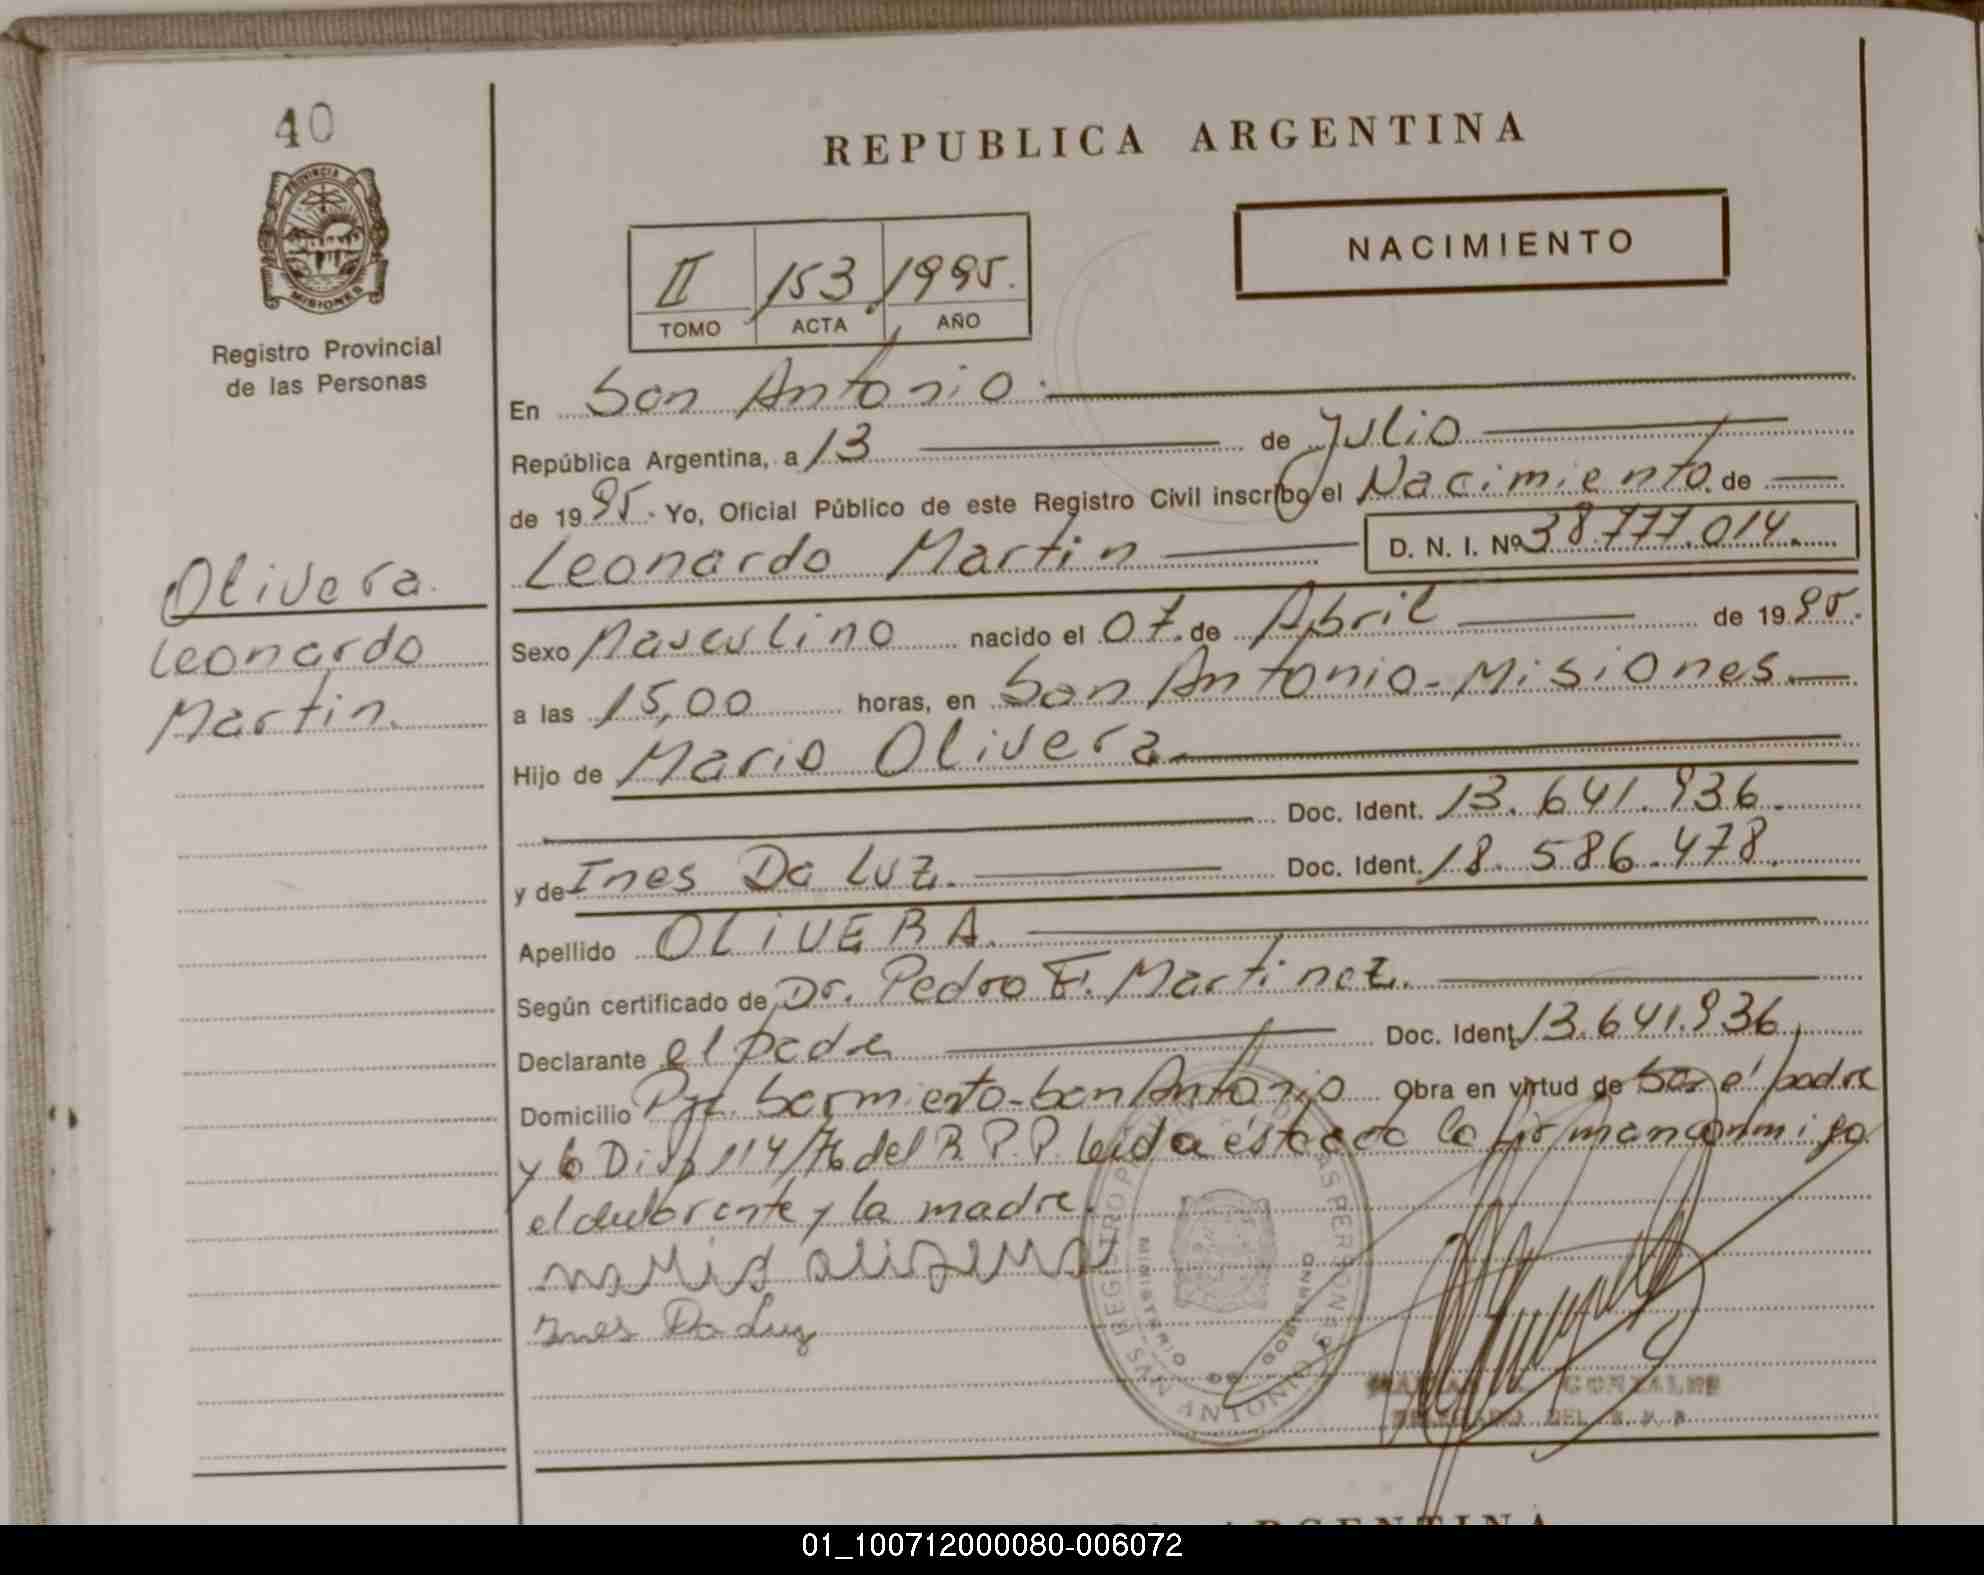 40
PROVINCIA DE
MISIONES
Registro Provincial
de las Personas
REPUBLICA ARGENTINA
NACIMIENTO
II 153 1995.
TOMO ACTA AÑO
En San Antonio.
República Argentina, a 13 de Julio
de 1995. Yo, Oficial Público de este Registro Civil inscribo el Nacimiento de
Leonardo Martin D. N. I. Nº 38.777.014.
Olivera.
Leonardo
Martin.
Sexo Masculino nacido el 07 de Abril de 1995.
a las 15,00 horas, en San Antonio - Misiones.
Hijo de Mario Olivera.
Doc. Ident. 13.641.936.
y de Ines Da Luz. Doc. Ident. 18.586.478.
Apellido OLIVERA.
Según certificado de Dr. Pedro F. Martinez.
Declarante el padre Doc. Ident. 13.641.936,
Domicilio Pje. Sarmiento - San Antonio Obra en virtud de Ser el padre
y la Disp 114/76 del R.P.P. leida ésta acta la firman conmigo
el declarante y la madre.
Mario Olivera
Ines Da Luz
MINISTERIO DE GOBIERNO
SAN ANTONIO
GONZALES
DELEGADO DEL R.P.P.
ARGENTINA
01_100712000080-006072